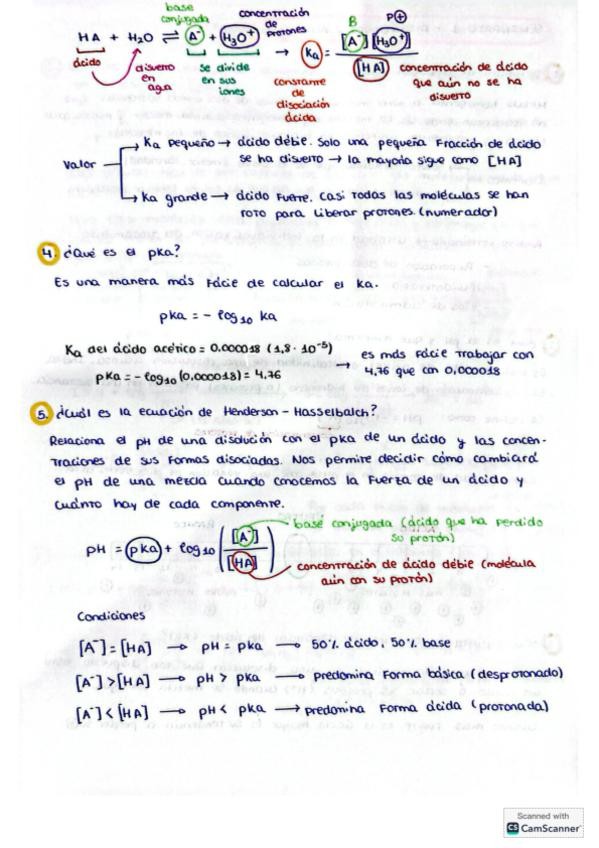 base conjugada
concentración de protones
B P⊕
HA + H₂O ⇌ A⁻ + H₃O⁺ → Ka = [A⁻] [H₃O⁺] / [HA]
ácido
disuelto en agua
se divide en sus iones
constante de disociación ácida
concentración de ácido que aún no se ha disuelto
Valor
Ka pequeño → ácido débil. Solo una pequeña fracción de ácido
se ha disuelto → la mayoría sigue como [HA]
Ka grande → ácido fuerte. Casi todas las moléculas se han
roto para liberar protones. (numerador)
4. ¿Qué es el pKa?
Es una manera más fácil de calcular el Ka.
pKa = - log₁₀ Ka
Ka del ácido acético = 0.000018 (1,8 · 10⁻⁵)
pKa = - log₁₀ (0,000018) = 4,76
→ es más fácil trabajar con
4,76 que con 0,000018
5. ¿Cuál es la ecuación de Henderson - Hasselbalch?
Relaciona el pH de una disolución con el pKa de un ácido y las concen-
traciones de sus formas disociadas. Nos permite decidir cómo cambiará
el pH de una mezcla cuando conocemos la fuerza de un ácido y
cuánto hay de cada componente.
base conjugada (ácido que ha perdido
su protón)
pH = pKa + log₁₀ ([A⁻] / [HA])
concentración de ácido débil (molécula
aún con su protón)
Condiciones
[A⁻] = [HA] → pH = pKa → 50% ácido, 50% base
[A⁻] > [HA] → pH > pKa → predomina forma básica (desprotonado)
[A⁻] < [HA] → pH < pKa → predomina forma ácida (protonada)
Scanned with
CS CamScanner